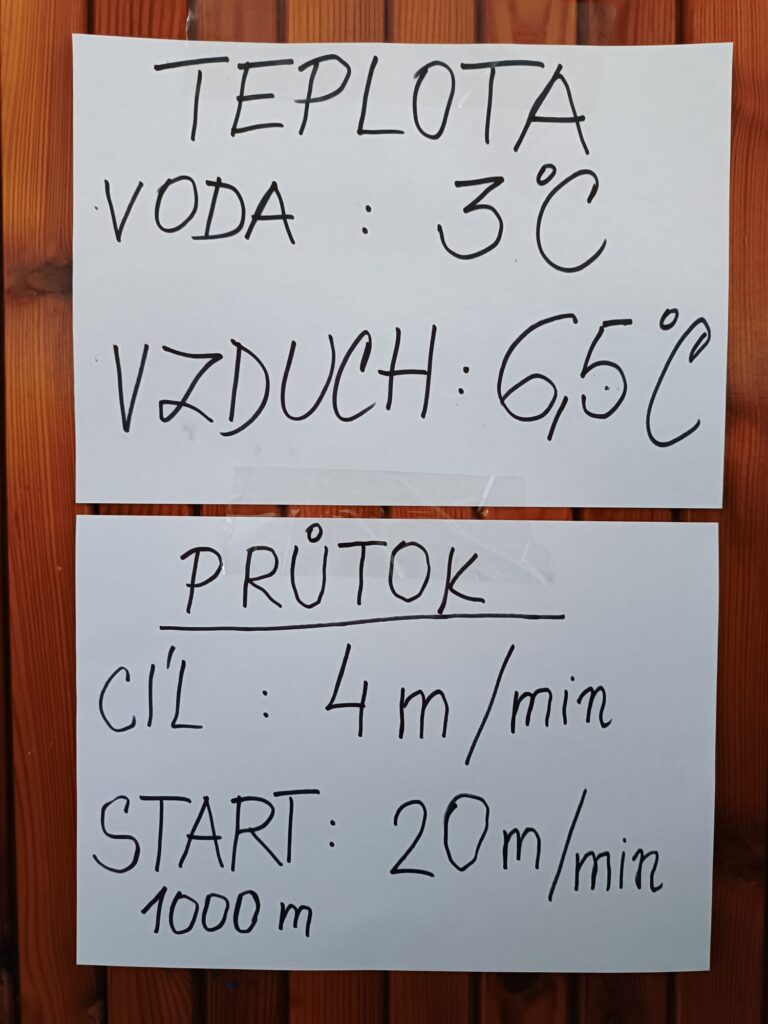 TEPLOTA
VODA : 3°C
VZDUCH : 6,5°C
PRŮTOK
CÍL : 4 m/min
START : 20 m/min
1000 m